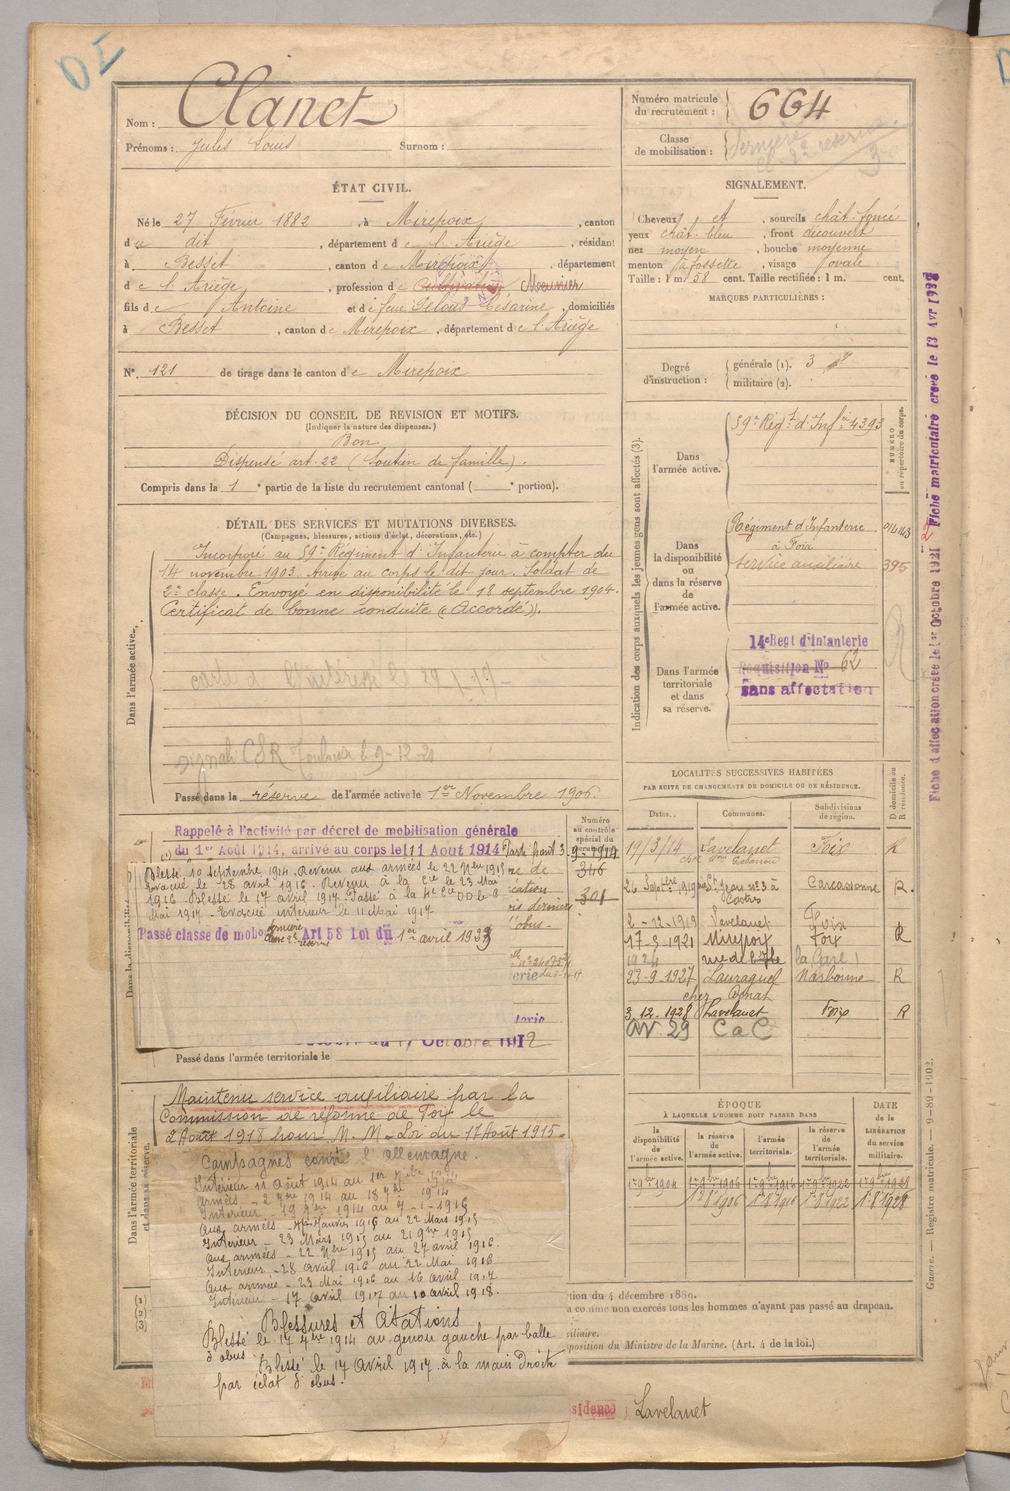 Nom : Clanet
Prénoms : Jules Louis Surnom :
Numéro matricule du recrutement : 664
Classe de mobilisation : dernière
de 2e réserve
3
ÉTAT CIVIL.
Né le 27 Février 1882, à Mirepoix, canton
du dit, département de l'Ariège, résidant
à Besset, canton de Mirepoix, département
de l'Ariège, profession de Cultivateur Meunier
fils de Antoine et de feue Delous Césarine, domiciliés
à Besset, canton de Mirepoix, département de l'Ariège
N° 121 de tirage dans le canton de Mirepoix
SIGNALEMENT.
Cheveux et, sourcils chât-foncé
yeux chât-bleu, front découvert
nez moyen, bouche moyenne
menton à fossette, visage ovale
Taille : 1 m. 58 cent. Taille rectifiée : 1 m. cent.
MARQUES PARTICULIÈRES :
Degré d'instruction : générale (1). 3
militaire (2).
DÉCISION DU CONSEIL DE REVISION ET MOTIFS.
(Indiquer la nature des dispenses.)
Bon
Dispensé art. 22 (Soutien de famille).
Compris dans la 1e partie de la liste du recrutement cantonal ( e portion).
DÉTAIL DES SERVICES ET MUTATIONS DIVERSES.
(Campagnes, blessures, actions d'éclat, décorations, etc.)
Dans l'armée active.
Incorporé au 59e Régiment d'Infanterie à compter du
14 novembre 1903. Arrivé au corps le dit jour. Soldat de
2e classe. Envoyé en disponibilité le 18 septembre 1904.
Certificat de bonne conduite "Accordé".
signalé CSR Toulouse le 9-12-20
Passé dans la réserve de l'armée active le 1er Novembre 1906.
Indication des corps auxquels les jeunes gens sont affectés (3).
NUMÉRO au répertoire du corps.
Dans l'armée active. 59e Régt d'Infie 4393
Dans la disponibilité ou dans la réserve de l'armée active.
Régiment d'Infanterie 01443
à Foix
service auxiliaire 395
Dans l'armée territoriale et dans sa réserve.
14e Regt d'Infanterie
Réquisition N° 62
sans affectation
Fiche d'affectation créée le 1er Octobre 1921
Fiche matriculaire créée le 13 Avr 1932
Rappelé à l'activité par décret de mobilisation générale
du 1er Août 1914, arrivé au corps le 11 Août 1914
Numéro au contrôle spécial du
346
301
Blessé, 10 septembre 1914. Revenu aux armées le 22 Nbre 1915
Evacué le 28 avril 1916. Revenu à la Cie le 23 Mai
1916. Blessé le 17 avril 1917. Passé à la 4e Cie DD le 8
Mai 1917. Evacué intérieur le 11 Mai 1917
Passé classe de mobo dernière de 2e réserve Art 58 Loi du 1er avril 1933
Passé dans l'armée territoriale le
Octobre 1912
LOCALITÉS SUCCESSIVES HABITÉES
PAR SUITE DE CHANGEMENTS DE DOMICILE OU DE RÉSIDENCE.
Dates. Communes. Subdivisions de région. D domicile ou R résidence.
19/3/14 Lavelanet Foix R
1919 St Jean n° 3 à Castres Carcassonne R.
2-12-1919 Lavelanet Foix
17-9-1921 Mirepoix Foix R
1924 la Gare
23-9-1927 Lauraguel Narbonne R
3.12.1928 Lavelanet Foix R
AV 29 C à C
Dans l'armée territoriale et dans sa réserve.
Maintenu service auxiliaire par la
Commission de réforme de Foix le
2 Août 1918 pour M. M - Loi du 17 Août 1915.
Campagnes contre l'Allemagne.
Intérieur 11 Août 1914 au 1er 7bre 1914
armées - 2 7bre 1914 au 18 7bre 1914
Intérieur - 19 7bre 1914 au 7-1-1916
Aux armées - 8 Janvier 1916 au 22 Mars 1915
Intérieur - 23 Mars 1915 au 21 9bre 1915
Aux armées - 22 Nbre 1915 au 27 avril 1916
Intérieur - 28 avril 1916 au 22 Mai 1916
Aux armées - 23 Mai 1916 au 16 avril 1917
Intérieur - 17 avril 1917 au 10 avril 1918.
Blessures et Citations
Blessé le 17 7bre 1914 au genou gauche par balle
d'obus. Blessé le 17 Avril 1917 à la main Droite
par éclat d'obus.
ÉPOQUE
À LAQUELLE L'HOMME DOIT PASSER DANS
la disponibilité de l'armée active. la réserve de l'armée active. l'armée territoriale. la réserve de l'armée territoriale.
DATE de la LIBÉRATION du service militaire.
1er 9bre 1904 1er 9bre 1906 1er 9bre 1916 1er 9bre 1922 1er 9bre 1928
1er 8 1906 1er 8 1916 1er 8 1922 1er 8 1928
(1)
(2)
(3)
tion du 4 décembre 1889.
a comme non exercés tous les hommes n'ayant pas passé au drapeau.
xiliaire.
sposition du Ministre de la Marine. (Art. 4 de la loi.)
sidence Lavelanet
Guerre. — Registre matricule. — 9-89-1902.